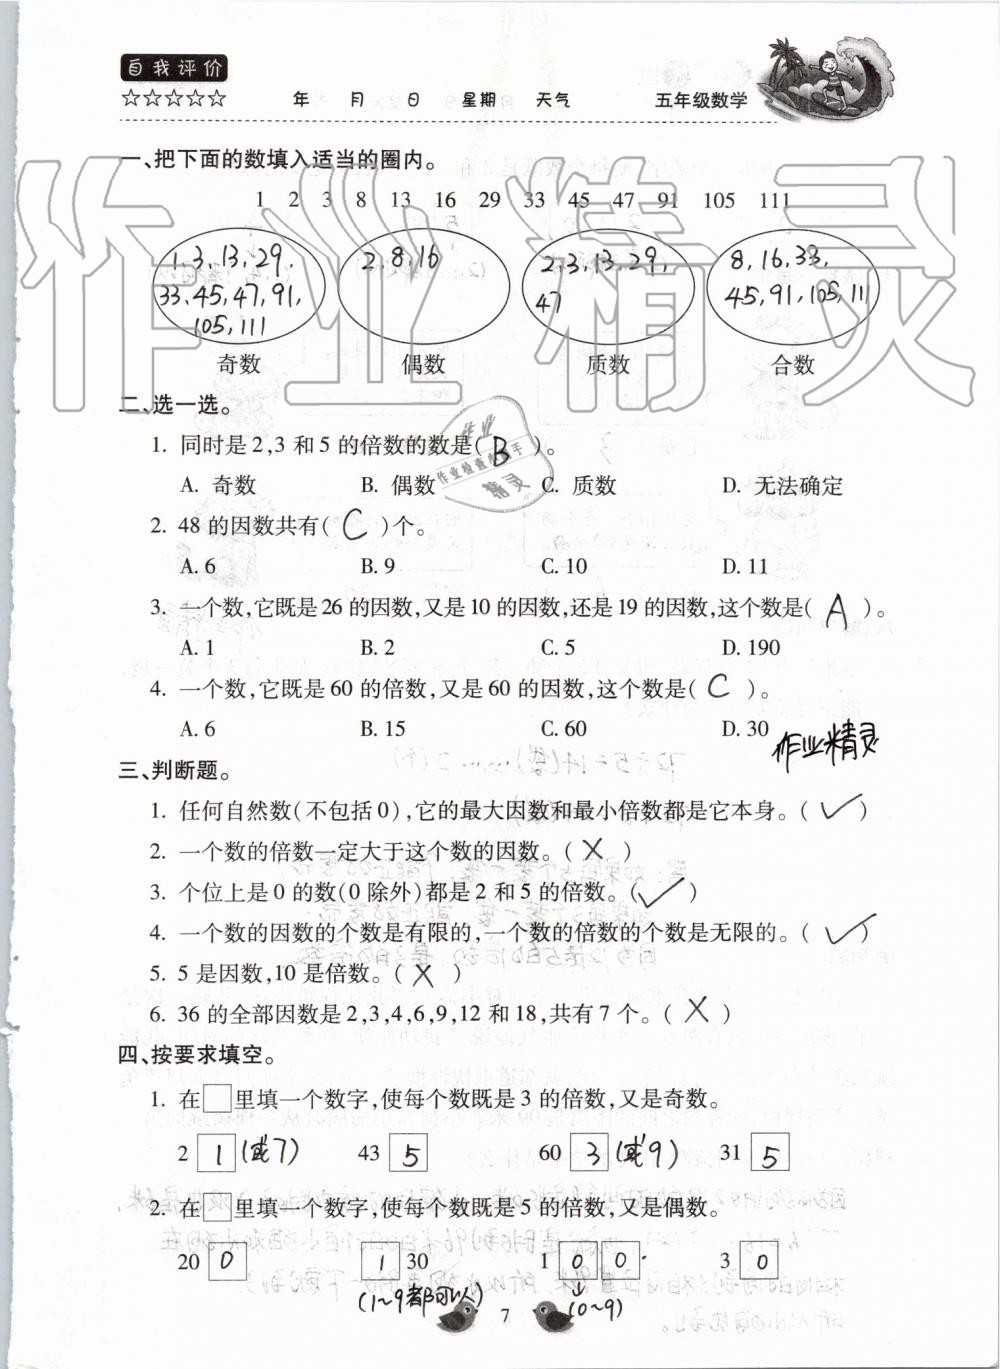 自我评价
☆☆☆☆☆ 年 月 日 星期 天气 五年级数学
一、把下面的数填入适当的圈内。
1 2 3 8 13 16 29 33 45 47 91 105 111
1,3,13,29, 2,8,16 2,3,13,29, 8,16,33,
33,45,47,91, 47 45,91,105,11
105,111
奇数 偶数 质数 合数
二、选一选。
1. 同时是2,3和5的倍数的数是( B )。
A. 奇数 B. 偶数 C. 质数 D. 无法确定
2. 48的因数共有( C )个。
A. 6 B. 9 C. 10 D. 11
3. 一个数,它既是26的因数,又是10的因数,还是19的因数,这个数是( A )。
A. 1 B. 2 C. 5 D. 190
4. 一个数,它既是60的倍数,又是60的因数,这个数是( C )。
A. 6 B. 15 C. 60 D. 30
作业精灵
三、判断题。
1. 任何自然数(不包括0),它的最大因数和最小倍数都是它本身。( ✓ )
2. 一个数的倍数一定大于这个数的因数。( X )
3. 个位上是0的数(0除外)都是2和5的倍数。( ✓ )
4. 一个数的因数的个数是有限的,一个数的倍数的个数是无限的。( ✓ )
5. 5是因数,10是倍数。( X )
6. 36的全部因数是2,3,4,6,9,12和18,共有7个。( X )
四、按要求填空。
1. 在□里填一个数字,使每个数既是3的倍数,又是奇数。
2 1 (或7) 43 5 60 3 (或9) 31 5
2. 在□里填一个数字,使每个数既是5的倍数,又是偶数。
20 0 1 30 1 0 0 3 0
(1~9都可以) (0~9)
7
作业精灵
作业
作业检查小助手
精灵